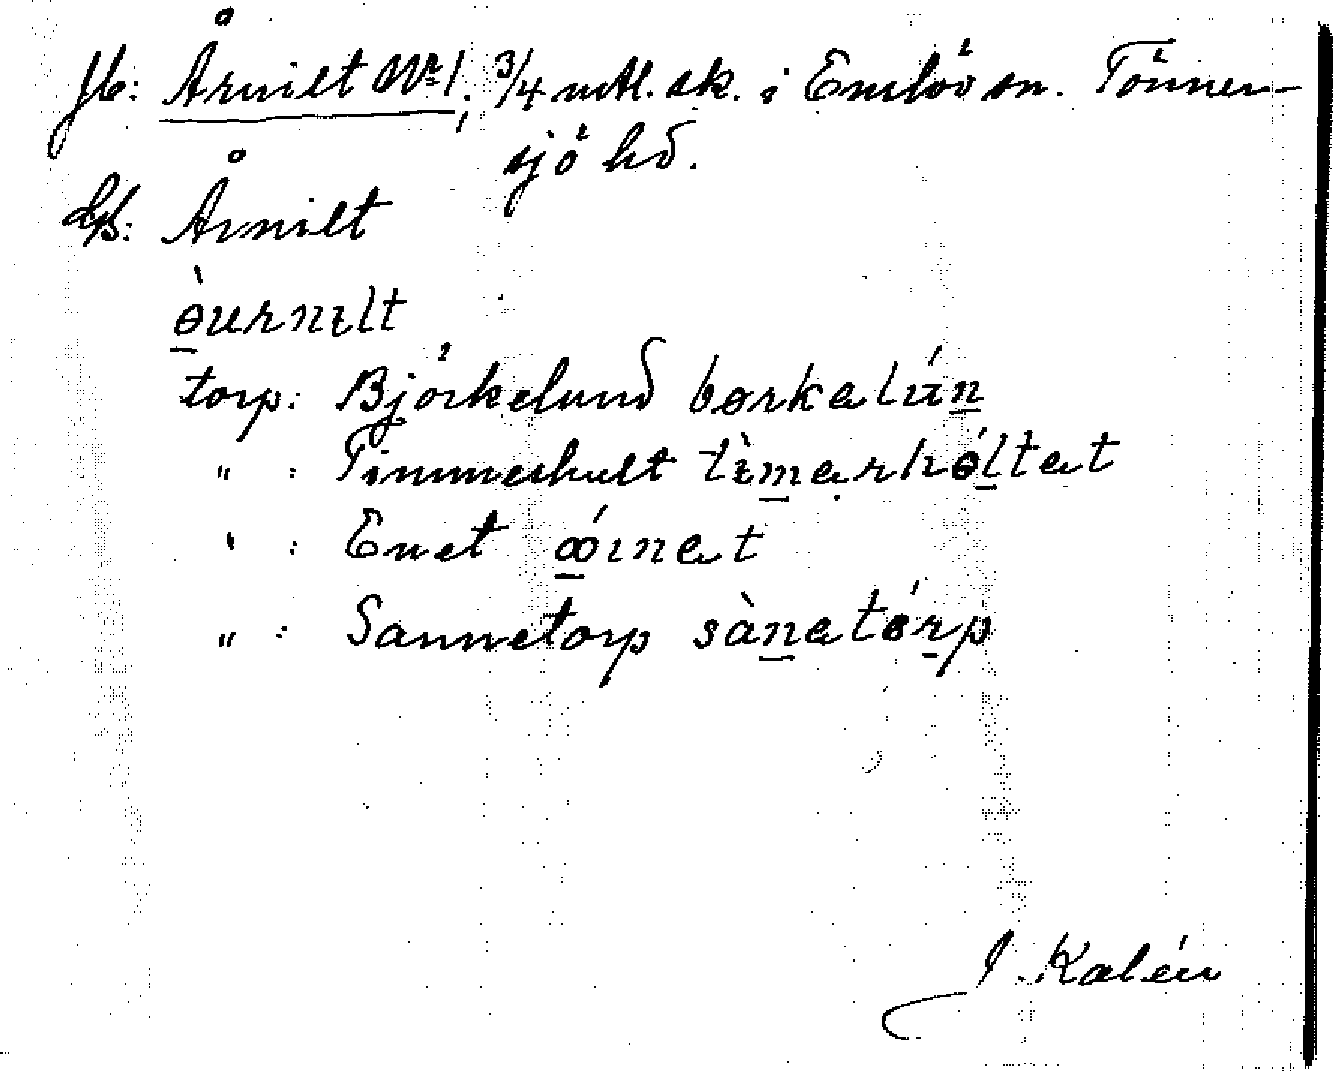 Jb: Årnilt No 1, 3/4 mtl. sk. i Enslöv sn. Tönner-
sjö hd.
Årnilt
òurnɩlt
torp: Björkelund børkalún
" : Timmerhult tìmarhóltat
" : Enet óɩnat
" : Sannetorp sànatórp
J. Kalén